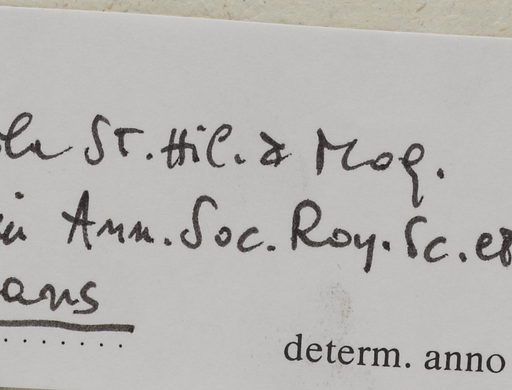 St. Hil. & Moq.
in Ann. Soc. Roy. Sc. et
ans
determ. anno